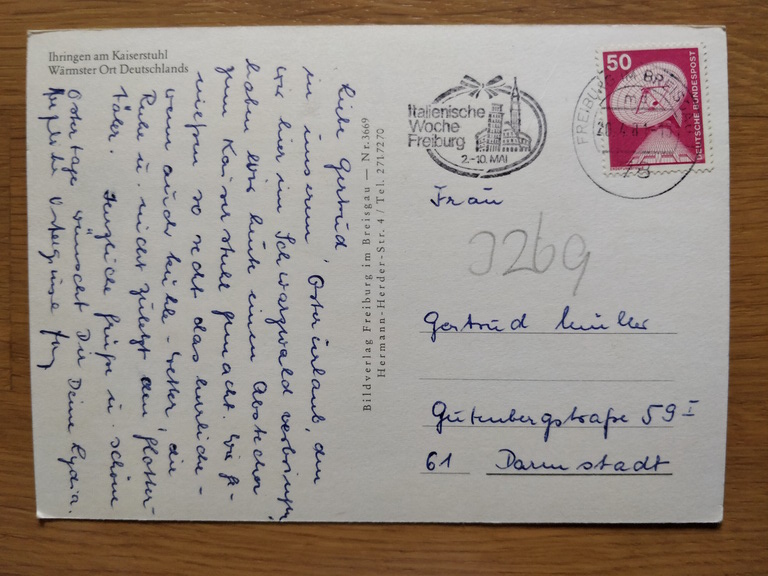 Ihringen am Kaiserstuhl
Wärmster Ort Deutschlands
Liebe Gertrud,
in unserem Osterurlaub, den
wir hier im Schwarzwald verbringen,
haben wir heute einen Abstecher
zum Kaiserstuhl gemacht. Wir ge-
niessen so recht das herrliche -
wenn auch kühle - Wetter, die
Ruhe u. nicht zuletzt den Glotter-
täler. Herzliche Grüße u. schöne
Ostertage wünscht Dir Deine Lydia.
Ostergrüsse
Bildverlag Freiburg im Breisgau — Nr. 3669
Hermann-Herder-Str. 4 / Tel. 271/7270
Italienische
Woche
Freiburg
2.-10. MAI
FREIBURG IM BREISGAU
50
DEUTSCHE BUNDESPOST
Frau
J269
Gertrud Müller
Gutenbergstraße 59 I
61 Darmstadt